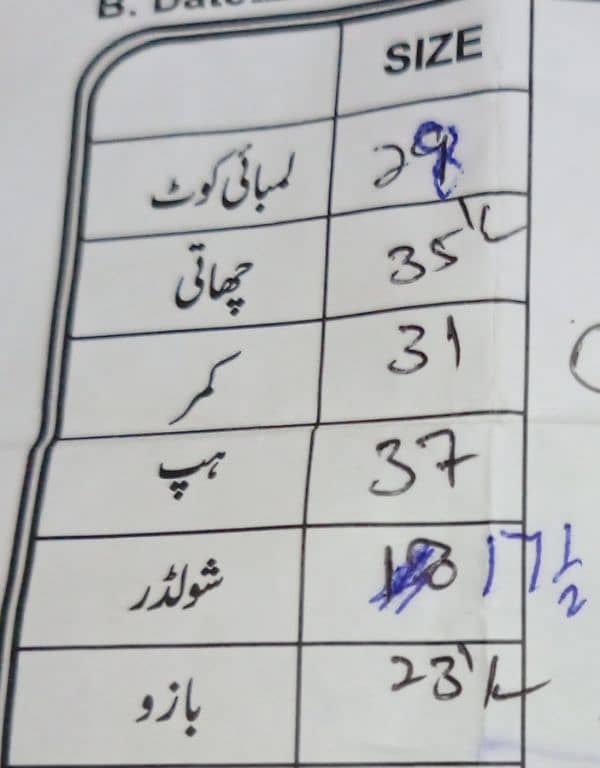 B. Date
SIZE
لمبائی کوٹ 29
چھاتی 35 ½
کمر 31
ہپ 37
شولڈر 17 ½
بازو 23 ½